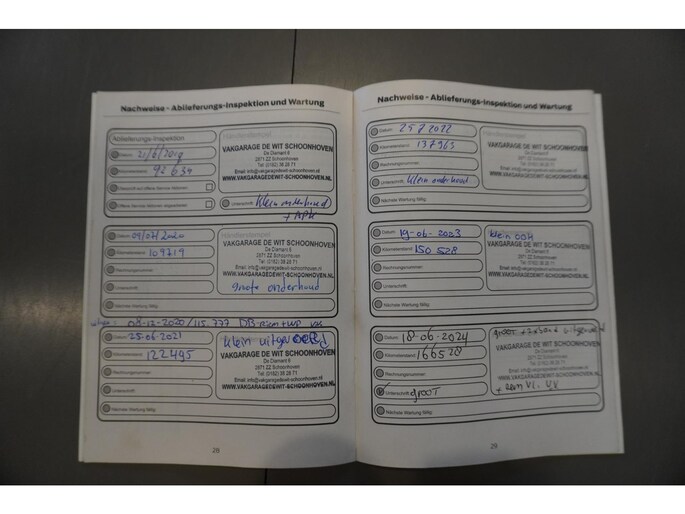 Nachweise - Ablieferungs-Inspektion und Wartung
Ablieferungs-Inspektion
Datum 21/6/2019
Kilometerstand 92 634
VAKGARAGE DE WIT SCHOONHOVEN
De Diamant 6
2871 ZZ Schoonhoven
Tel: (0182) 38 28 71
Email: info@vakgaragedewit-schoonhoven.nl
WWW.VAKGARAGEDEWIT-SCHOONHOVEN.NL
Unterschrift Klein onderhoud
+ APK
Datum 09/07/2020
Kilometerstand 109719
Rechnungsnummer
Unterschrift
VAKGARAGE DE WIT SCHOONHOVEN
De Diamant 6
2871 ZZ Schoonhoven
Tel: (0182) 38 28 71
Email: info@vakgaragedewit-schoonhoven.nl
WWW.VAKGARAGEDEWIT-SCHOONHOVEN.NL
groote onderhoud
Nächste Wartung fällig
08-12-2020/115.777
Datum 25-06-2021
Kilometerstand 122495
Rechnungsnummer
Unterschrift
klein uitgevoerd
VAKGARAGE DE WIT SCHOONHOVEN
De Diamant 6
2871 ZZ Schoonhoven
Tel: (0182) 38 28 71
Email: info@vakgaragedewit-schoonhoven.nl
WWW.VAKGARAGEDEWIT-SCHOONHOVEN.NL
Nächste Wartung fällig
28
Nachweise - Ablieferungs-Inspektion und Wartung
Datum 25 7 2022
Kilometerstand 137963
Rechnungsnummer
Unterschrift Klein onderhoud
VAKGARAGE DE WIT SCHOONHOVEN
De Diamant 6
2871 ZZ Schoonhoven
Tel: (0182) 38 28 71
Email: info@vakgaragedewit-schoonhoven.nl
WWW.VAKGARAGEDEWIT-SCHOONHOVEN.NL
Nächste Wartung fällig
Datum 19-06-2023
Kilometerstand 150 528
Rechnungsnummer
Unterschrift
klein OOH
VAKGARAGE DE WIT SCHOONHOVEN
De Diamant 6
2871 ZZ Schoonhoven
Tel: (0182) 38 28 71
Email: info@vakgaragedewit-schoonhoven.nl
WWW.VAKGARAGEDEWIT-SCHOONHOVEN.NL
Nächste Wartung fällig
Datum 18-06-2024
Kilometerstand 166528
Rechnungsnummer
Unterschrift GROOT
VAKGARAGE DE WIT SCHOONHOVEN
De Diamant 6
2871 ZZ Schoonhoven
Tel: (0182) 38 28 71
Nächste Wartung fällig
29